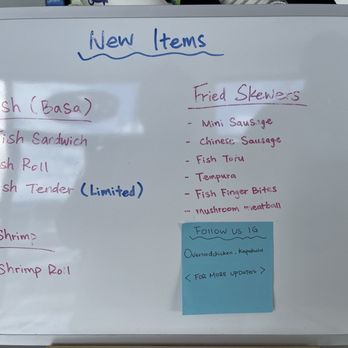 New Items
sh (Basa)
ish Sandwich
sh Roll
sh Tender (Limited)
Shrimp
Shrimp Roll
Fried Skewers
- Mini Sausage
- Chinese Sausage
- Fish Tofu
- Tempura
- Fish Finger Bites
- Mushroom Meatball
Follow us IG
< FOR MORE UPDATES >